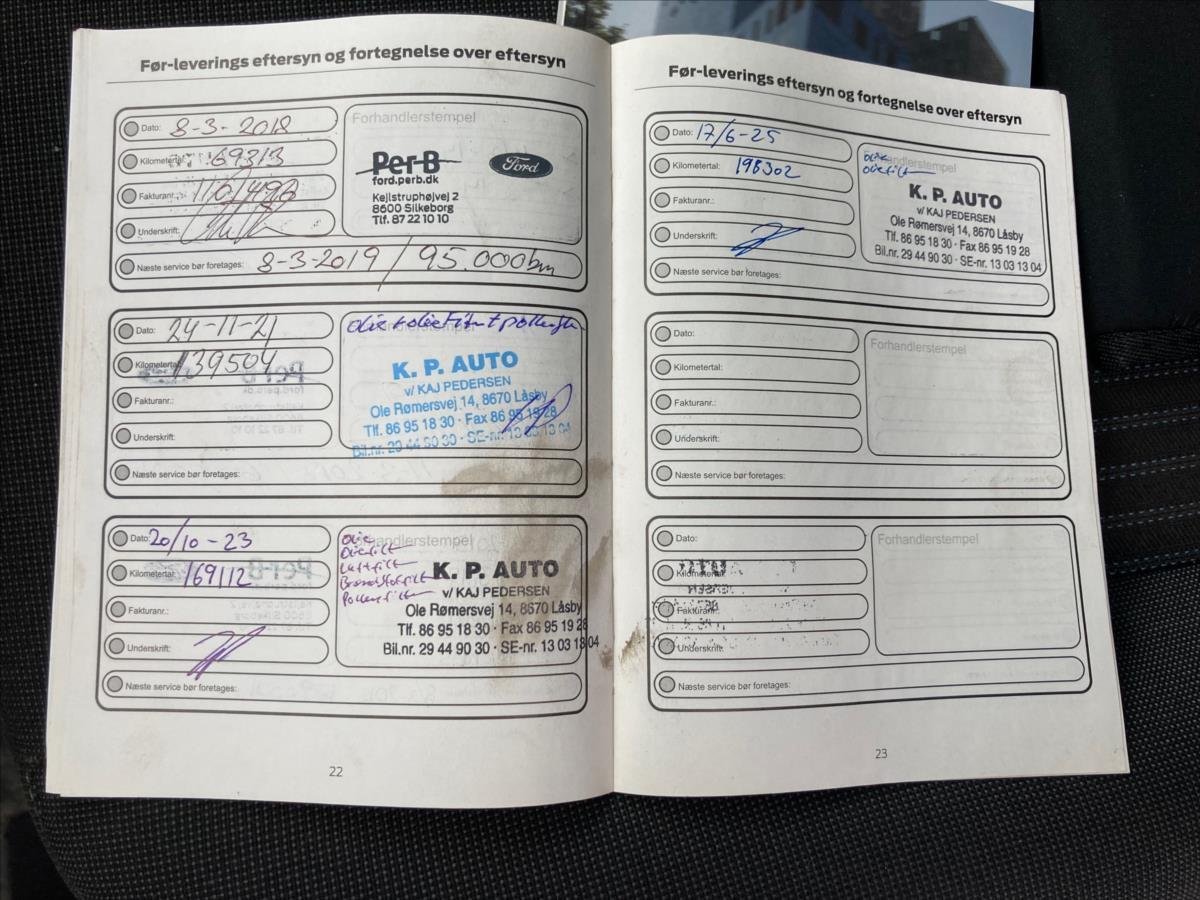 Før-leverings eftersyn og fortegnelse over eftersyn
Dato: 8-3-2018
Kilometertal: 69313
Fakturanr.:
Underskrift:
Forhandlerstempel
Per-B
ford.perb.dk
Ford
Kejlstruphøjvej 2
8600 Silkeborg
Tlf. 87 22 10 10
Næste service bør foretages: 8-3-2019 / 95.000km
Dato: 24-11-21
Kilometertal: 139504
Fakturanr.:
Underskrift:
Forhandlerstempel
olie + oliefilter + pollenfilter
K. P. AUTO
v/ KAJ PEDERSEN
Ole Rømersvej 14, 8670 Låsby
Tlf. 86 95 18 30 · Fax 86 95 19 28
Bil.nr. 29 44 90 30 · SE-nr. 13 03 13 04
Næste service bør foretages:
Dato: 20/10-23
Kilometertal: 169112
Fakturanr.:
Underskrift:
Forhandlerstempel
Olie
Oliefilt
Luftfilt
Brændstoffilt
Pollenfilt
K. P. AUTO
v/ KAJ PEDERSEN
Ole Rømersvej 14, 8670 Låsby
Tlf. 86 95 18 30 · Fax 86 95 19 28
Bil.nr. 29 44 90 30 · SE-nr. 13 03 13 04
Næste service bør foretages:
22
Før-leverings eftersyn og fortegnelse over eftersyn
Dato: 17/6-25
Kilometertal: 198302
Fakturanr.:
Underskrift:
Forhandlerstempel
Olie
Oliefilt
K. P. AUTO
v/ KAJ PEDERSEN
Ole Rømersvej 14, 8670 Låsby
Tlf. 86 95 18 30 · Fax 86 95 19 28
Bil.nr. 29 44 90 30 · SE-nr. 13 03 13 04
Næste service bør foretages:
Dato:
Kilometertal:
Fakturanr.:
Underskrift:
Forhandlerstempel
Næste service bør foretages:
Dato:
Kilometertal:
Fakturanr.:
Underskrift:
Forhandlerstempel
Næste service bør foretages:
23